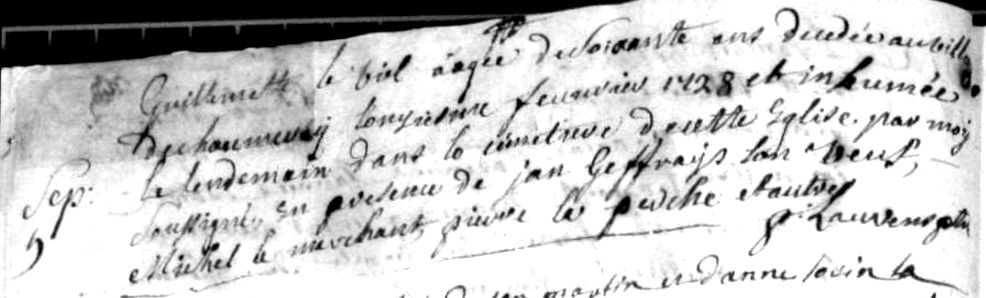 Guillemette le biel aagée de Soixante ans decedée au vill
De chaumeray Lonziesme feuvrier 1728 et inhumée
Sep: le lendemain dans le cimetiere de cette Eglise. par moy
Soussigné, En presence de jan Geffrays son veuf,
Michel le marchant, pierre la perche et autres
p: Lauvens ptre
martin et d'anne